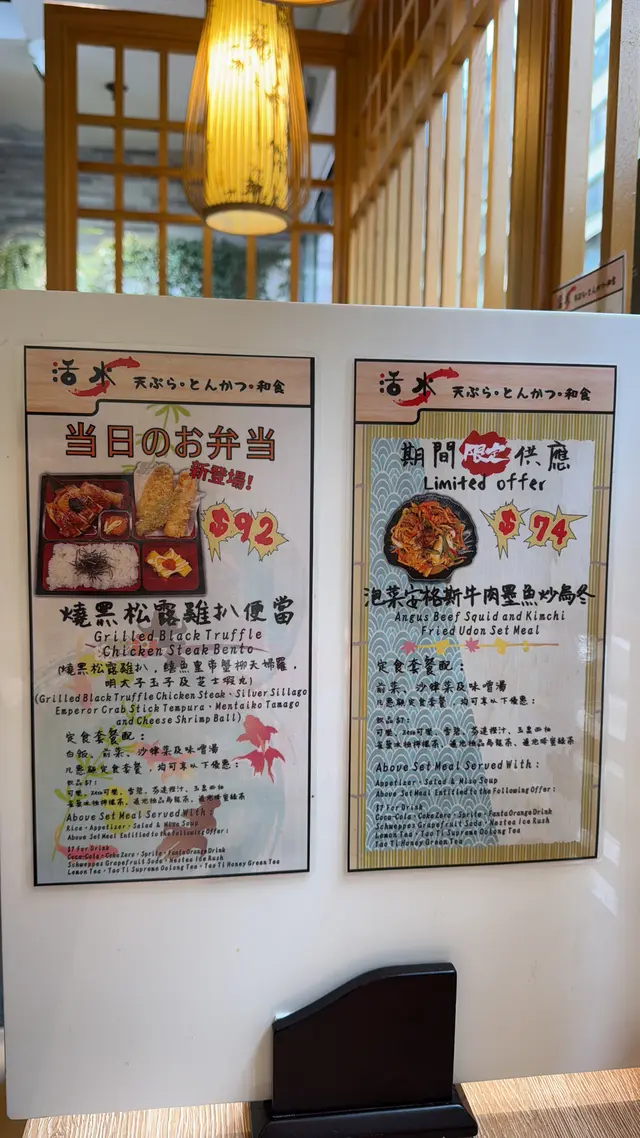 活水 天ぷら。とんかつ。和食
当日のお弁当
新登場!
$92
燒黑松露雞扒便當
Grilled Black Truffle
Chicken Steak Bento
(燒黑松露雞扒，鱚魚皇帝蟹柳天婦羅，
明太子玉子及芝士蝦丸)
(Grilled Black Truffle Chicken Steak、Silver Sillago
Emperor Crab Stick Tempura、Mentaiko Tamago
and Cheese Shrimp Ball)
定食套餐配：
白飯，前菜、沙律菜及味噌湯
凡惠顧定食套餐，均可享以下優惠：
飲品$7:
可樂，zero可樂，雪碧，芬達橙汁、玉泉西柚
Above Set Meal Served With :
Rice、Appetizer、Salad & Miso Soup
Above Set Meal Entitled to the Following Offer :
$7 For Drink
Coca-Cola、Coke Zero、Sprite、Fanta Orange Drink
Schweppes Grapefruit Soda、Nestea Ice Rush
Lemon Tea、Tao Ti Supreme Oolong Tea、Tao Ti Honey Green Tea
活水 天ぷら。とんかつ。和食
期間限定供應
Limited offer
$74
泡菜安格斯牛肉墨魚炒烏冬
Angus Beef Squid and Kimchi
Fried Udon Set Meal
定食套餐配：
前菜、沙律菜及味噌湯
凡惠顧定食套餐，均可享以下優惠：
飲品$7:
可樂，zero可樂，雪碧、芬達橙汁、玉泉西柚
Above Set Meal Served With :
Appetizer、Salad & Miso Soup
Above Set Meal Entitled to the Following Offer :
$7 For Drink
Coca-Cola、Coke Zero、Sprite、Fanta Orange Drink
Schweppes Grapefruit Soda、Nestea Ice Rush
Lemon Tea、Tao Ti Supreme Oolong Tea
Tao Ti Honey Green Tea